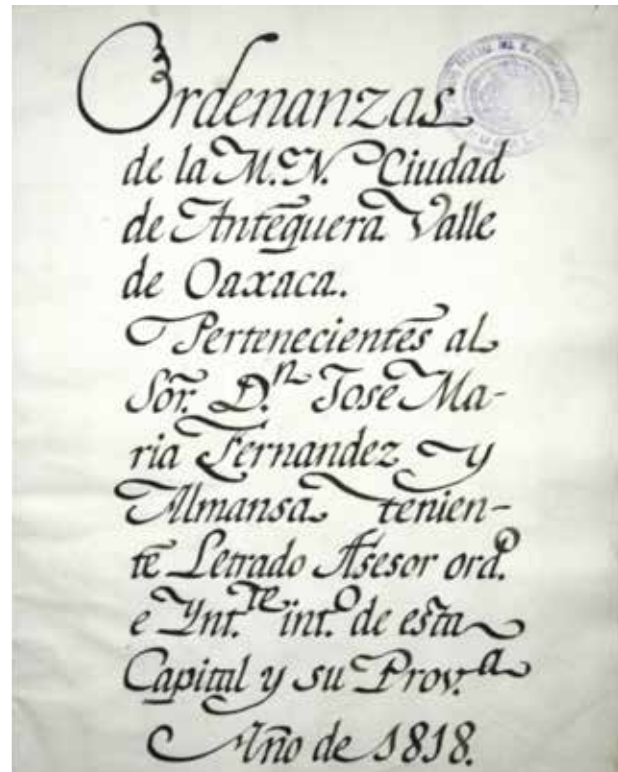 Ordenanzas
de la M. N. Ciudad
de Antequera Valle
de Oaxaca.
Pertenecientes al
Sõr. D.ⁿ José Ma-
ria Fernandez y
Almansa tenien-
te Letrado Asesor ord.º
e Ynt.ᵗᵉ int.º de esta
Capital y su Prov.ª
Año de 1818.